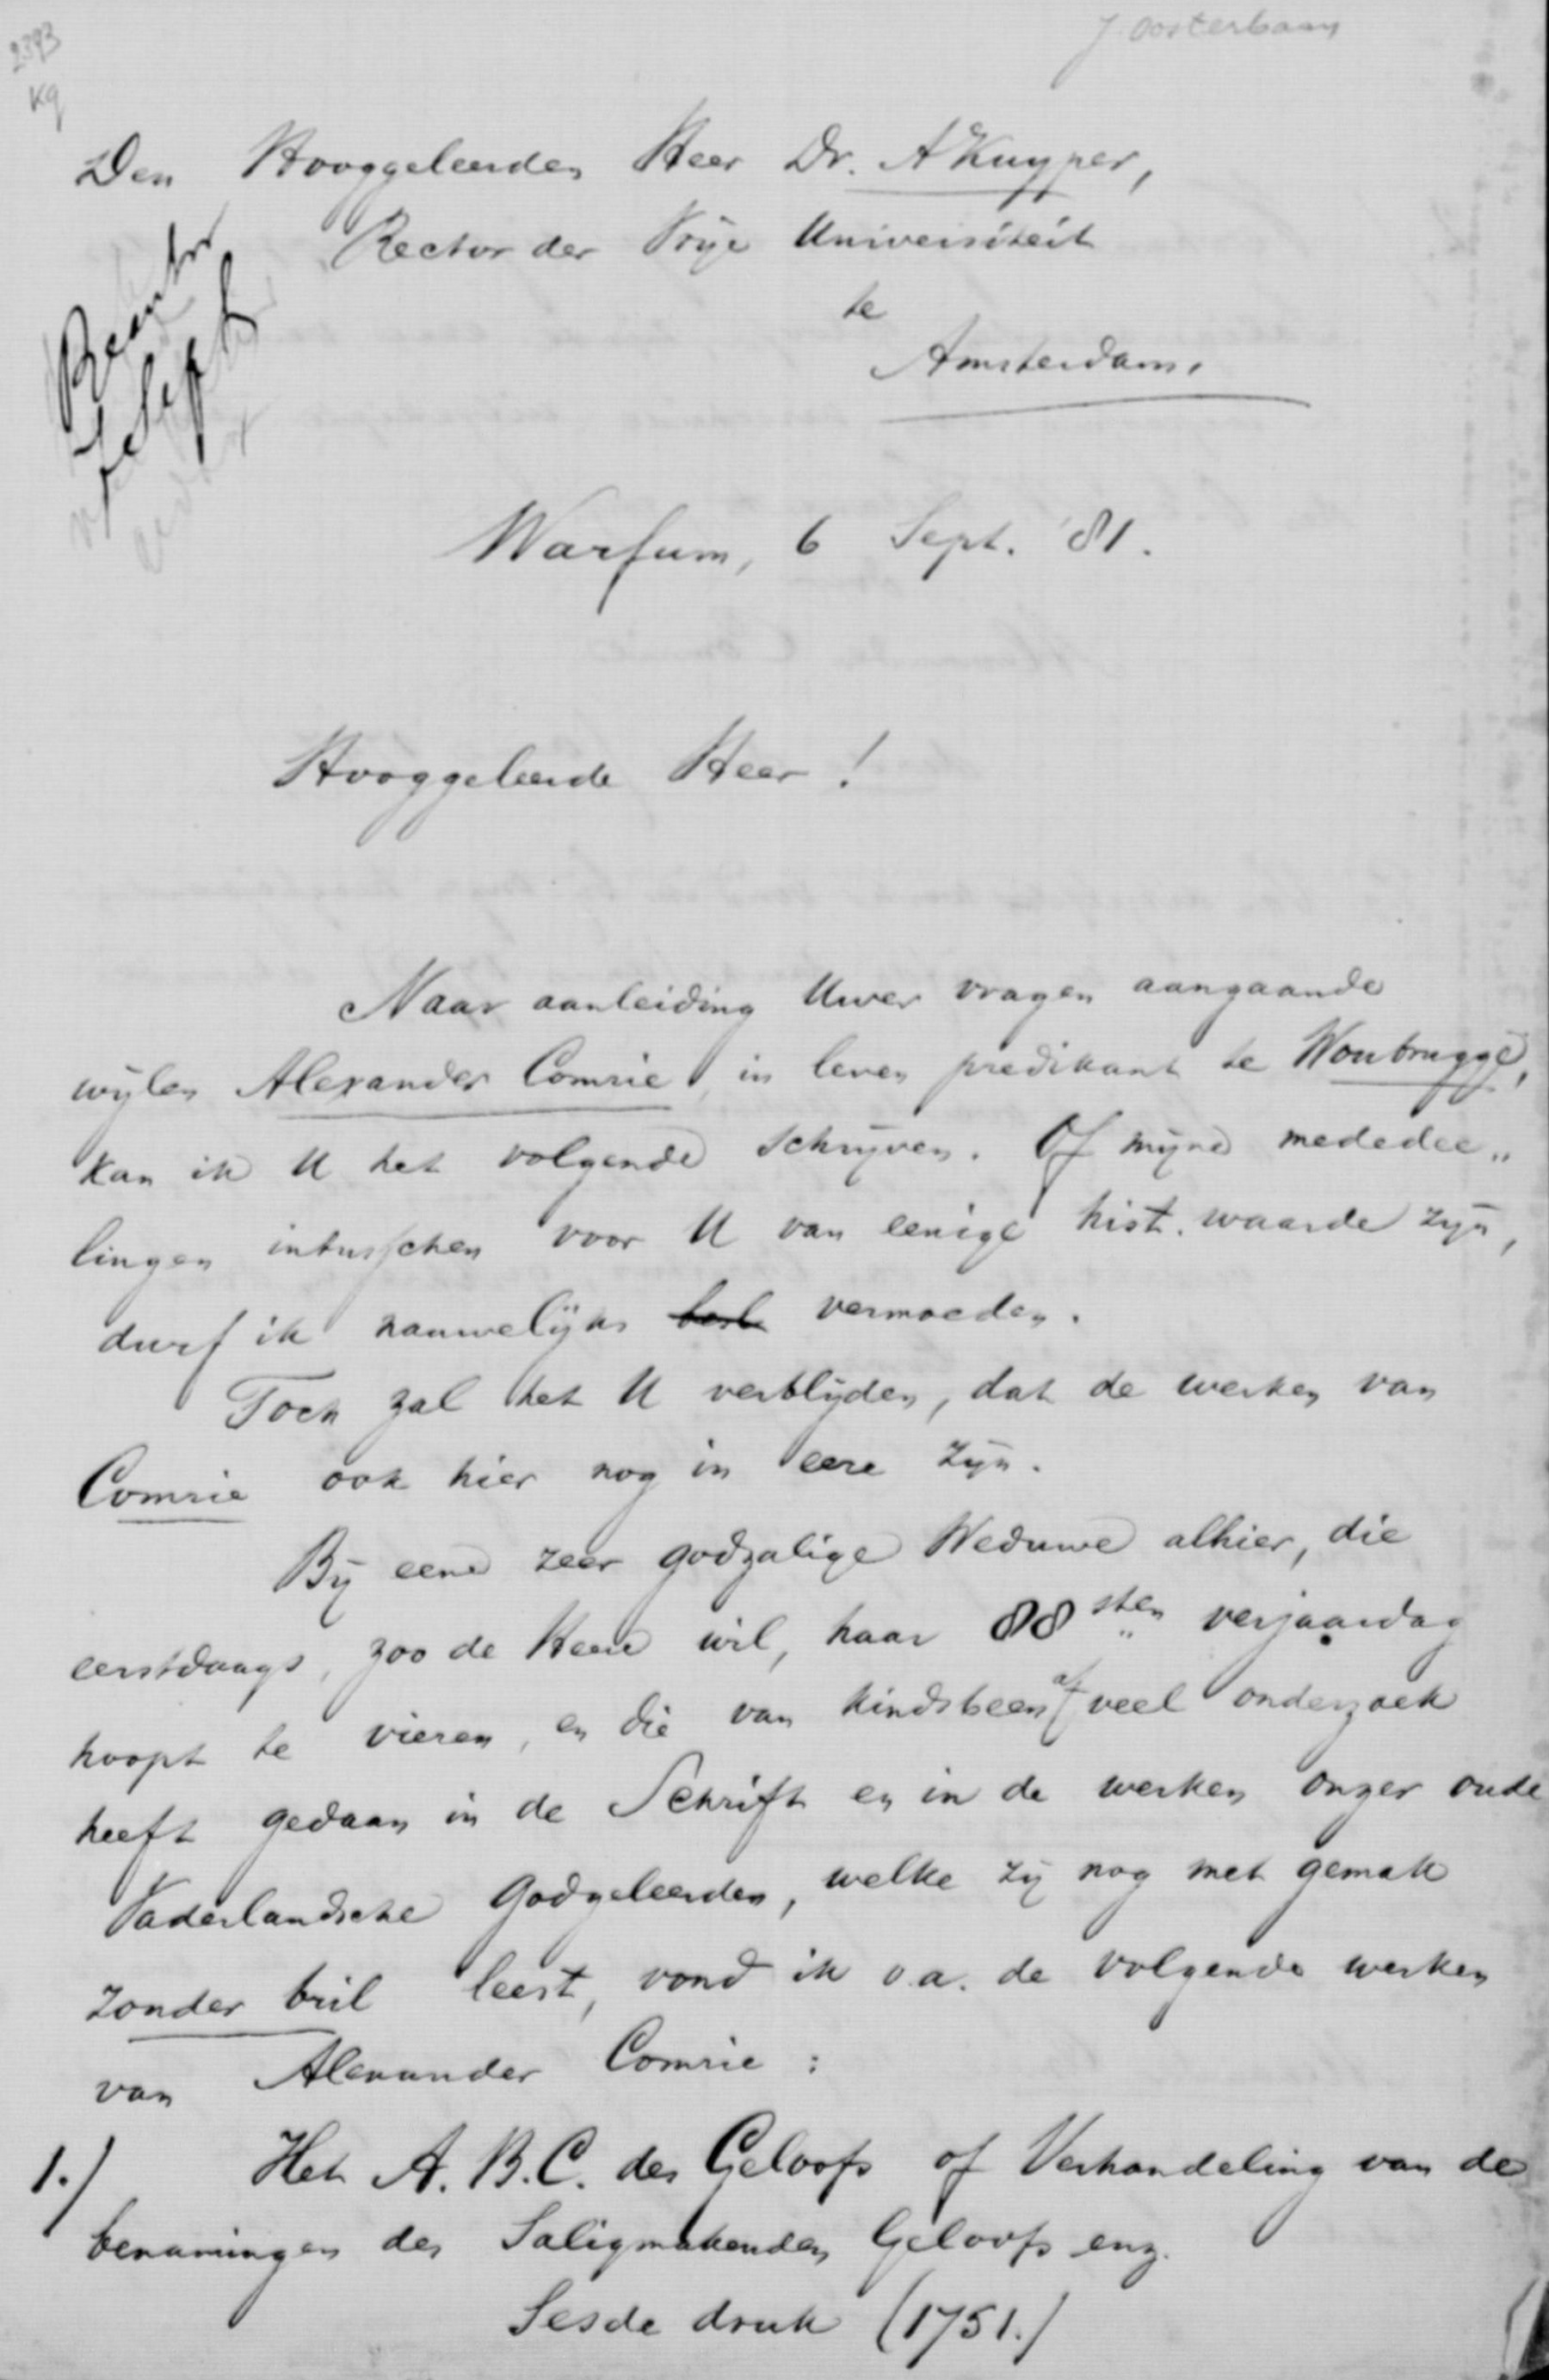 J Oosterbaan
2393
Kq
Den Hooggeleerden Heer Dr. A Kuyper,
Rector der Vrije Universiteit
te
Amsterdam.
Beantw
7 Sept
Warfum, 6 Sept. '81.
Hooggeleerde Heer!
Naar aanleiding Uwer vragen aangaande
wijlen Alexander Comrie, in leven predikant te Woubrugge,
kan ik U het volgende schrijven. Of mijne mededee„
lingen intusschen voor U van eenige hist. waarde zijn,
durf ik nauwelijks vermoeden.
Toch zal het U verblijden, dat de werken van
Comrie ook hier nog in eere zijn.
Bij eene zeer godzalige Weduwe alhier, die
eerstdaags, zoo de Heere wil, haar 88sten verjaardag
hoopt te vieren, en die van kindsbeen af veel onderzoek
heeft gedaan in de Schrift en in de werken onzer oude
Vaderlandsche Godgeleerden, welke zij nog met gemak
zonder bril leest, vond ik o.a. de volgende werken
van Alexander Comrie:
1.) Het A. B. C. des Geloofs of Verhandeling van de
benamingen des Saligmakenden Geloofs enz.
Sesde druk (1751.)